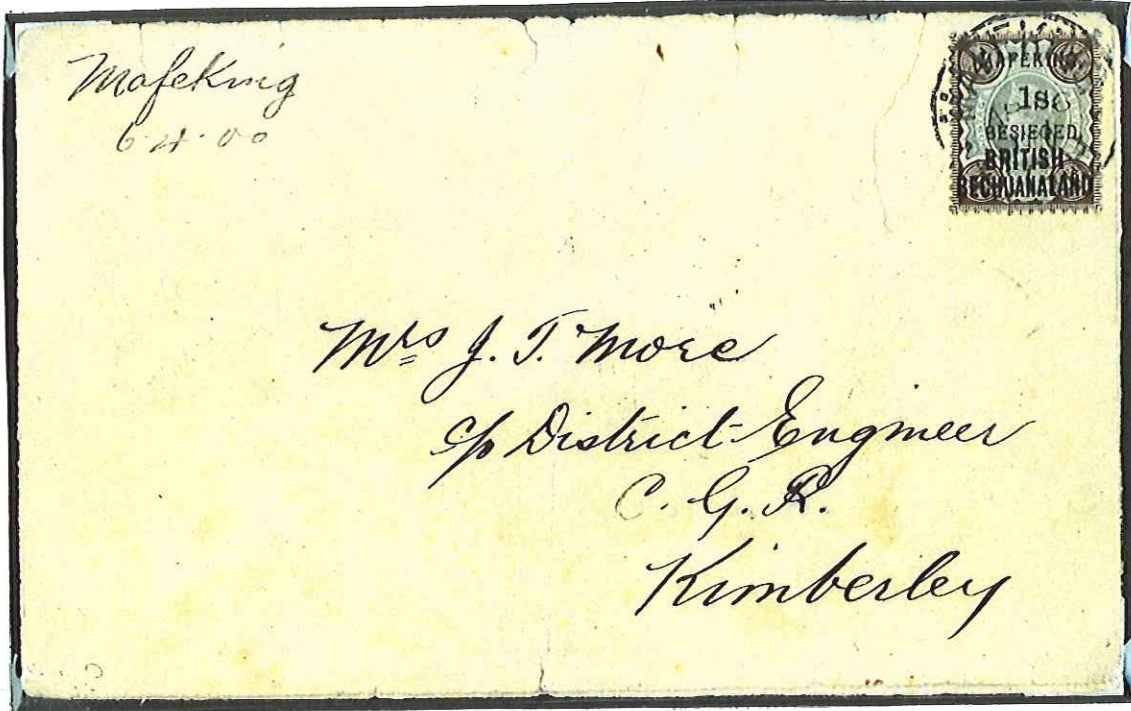 Mafeking
6.4.00
MAFEKING,
1s.
BESIEGED.
BRITISH
BECHUANALAND
Mrs J. T. More
c/o District Engineer
C. G. R.
Kimberley